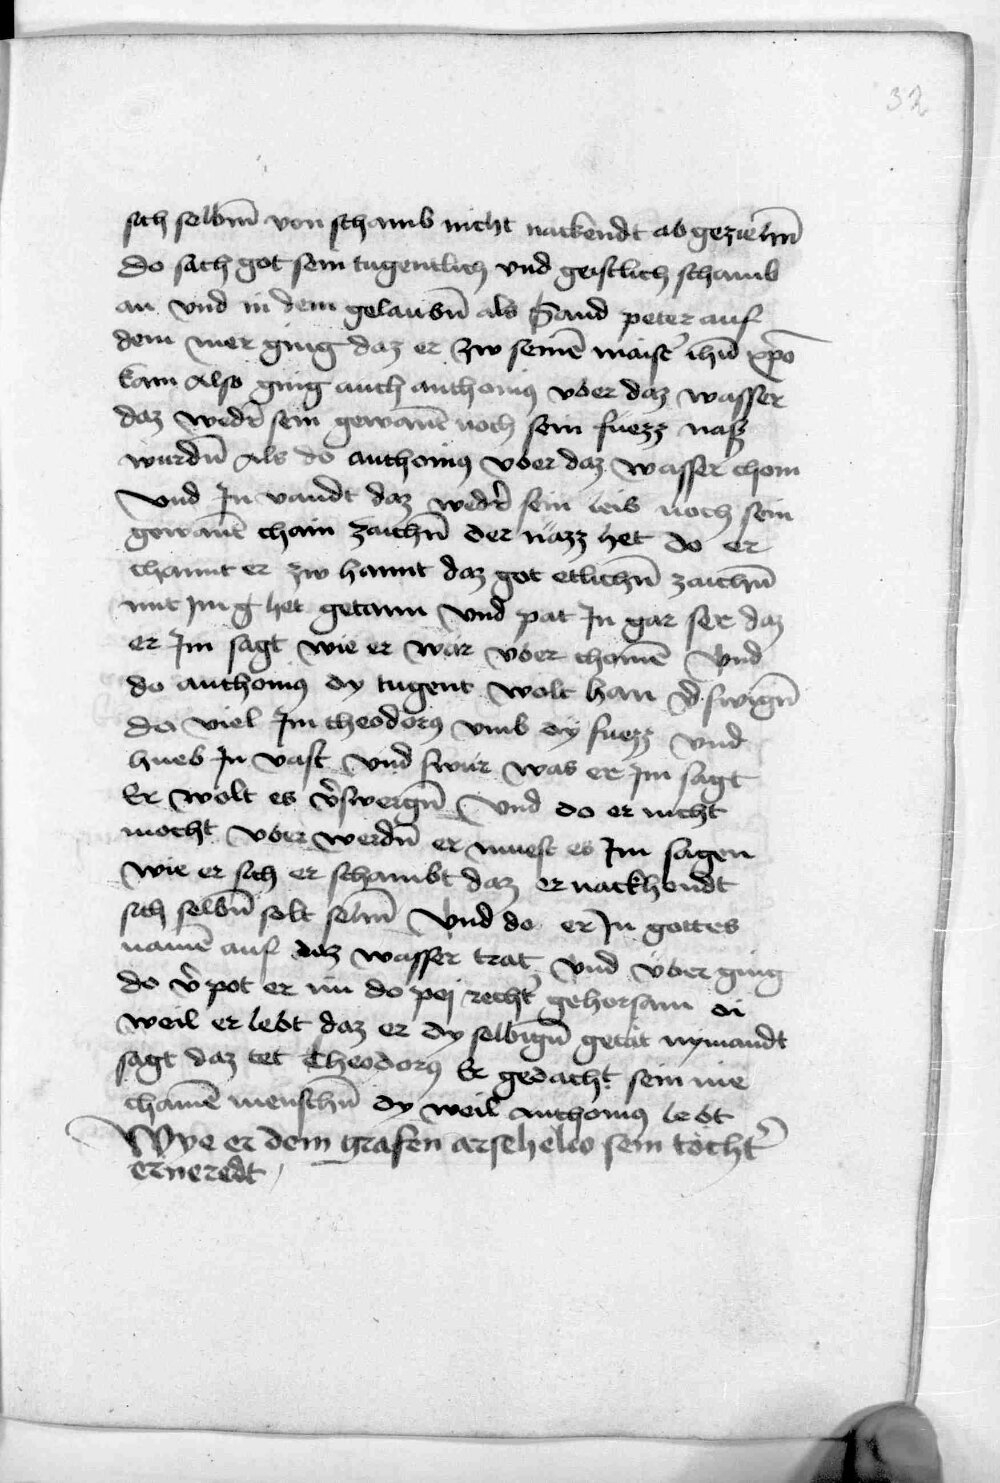 32
sich selbm̄ von schamb nicht nackendt abgeziehn̄
do sach got sein tugentlich vnd geistlich schamb
an vnd in dem gelaubn̄ als Sand peter auf
dem mer ging daz er zw seinē maist̄ ihū xp̄o
kam Also ging auch anthoniꝰ vber daz wasser
daz wedr̄ sein gewantt̄ noch sein fuezz nasz
wurdn̄ Als do anthoniꝰ vber daz wasser chom
Vnd In vandt daz wedr̄ sein leib noch sein
gewantt̄ chain zaichn̄ der näzz het do er
channt er zw hannt daz got etlichn̄ zaichn̄
mit Im het getann vnd pat In gar ser daz
er Im sagt wie er wär vber chomē Vnd
do anthoniꝰ dy tugent wolt han v̄swign̄
do viel Im theodorꝰ vmb dy fuezz vnd
hueb In vast vnd swur was er Im sagt
Er wolt es v̄swergn̄ Vnd do er nicht
mocht vber werdn̄ er muest es Im sagen
wie er sich er schambt daz er nackhendt
sich selbn̄ solt sehn̄ Vnd do er In gottes
namē auf daz wasser trat vnd vber ging
do v̄pot er im do pej recht̄ gehorsam di
weil er lebt daz er dy selbign̄ getät nymandt
sagt daz tet Theodorꝰ Er gedacht sein nie
chainē menschn̄ dy weil anthoniꝰ lebt
Wye er dem grafen arsehelio sein tocht̄
erneredt